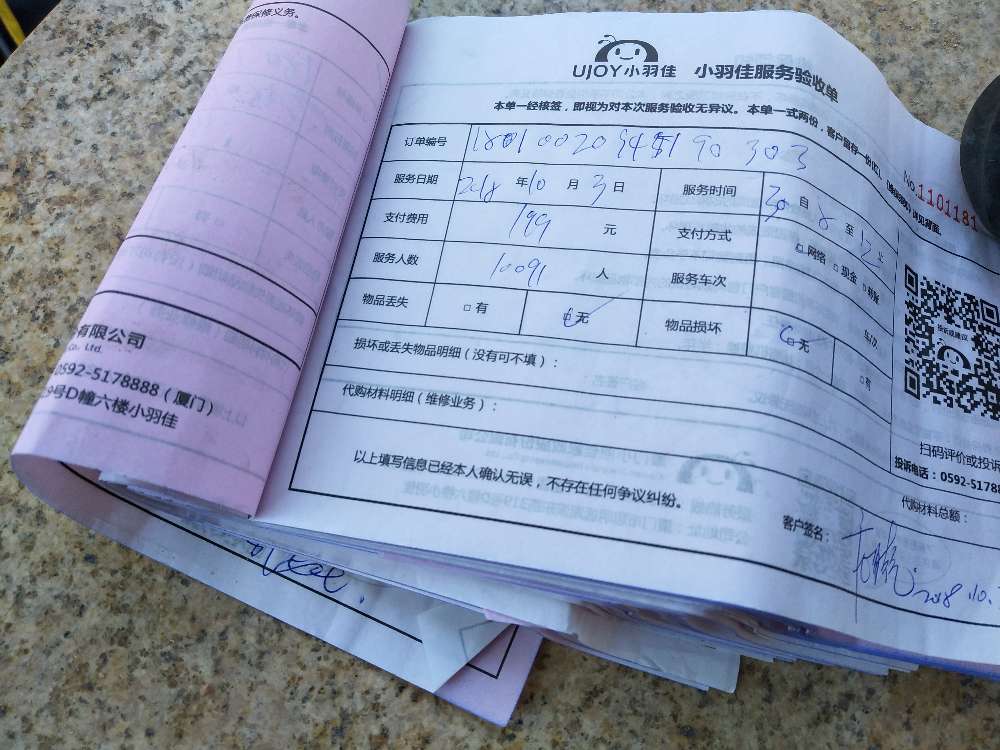 保修义务。
UJOY小羽佳 小羽佳服务验收单
本单一经核签，即视为对本次服务验收无异议。本单一式两份，客户留存一份
No.1101181
订单编号
服务日期 2018 年 10 月 3 日 服务时间 自 8 至 12
支付费用 199 元 支付方式 □ 网络 □ 现金 □ 转账
服务人数 10091 人 服务车次 车次
物品丢失 □ 有 □ 无 物品损坏 □ 无 □ 有
损坏或丢失物品明细（没有可不填）：
代购材料明细（维修业务）：
以上填写信息已经本人确认无误，不存在任何争议纠纷。
投诉或建议
扫码评价或投诉
投诉电话：0592-51788
代购材料总额：
客户签名：
2018.10.
有限公司
Co., Ltd.
0592-5178888（厦门）
9号D幢六楼小羽佳